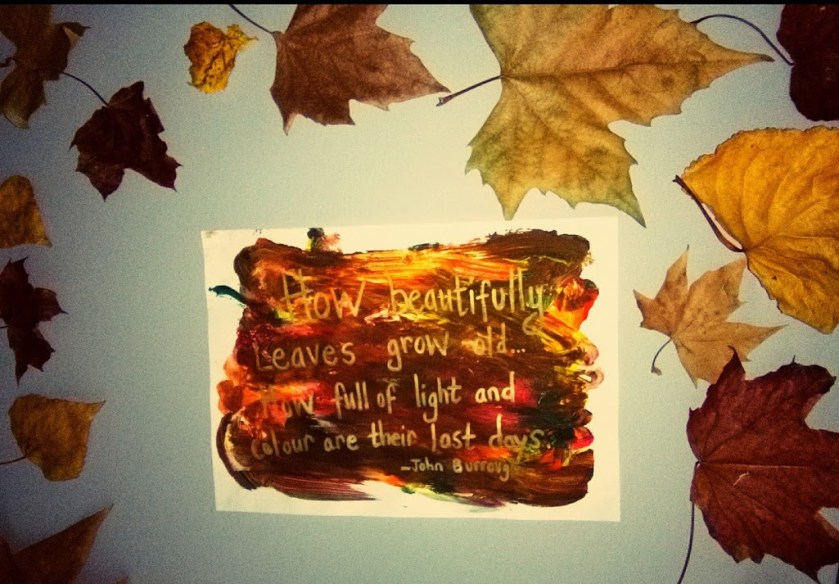 How beautifully
Leaves grow old...
How full of light and
Colour are their last days.
-John Burroug